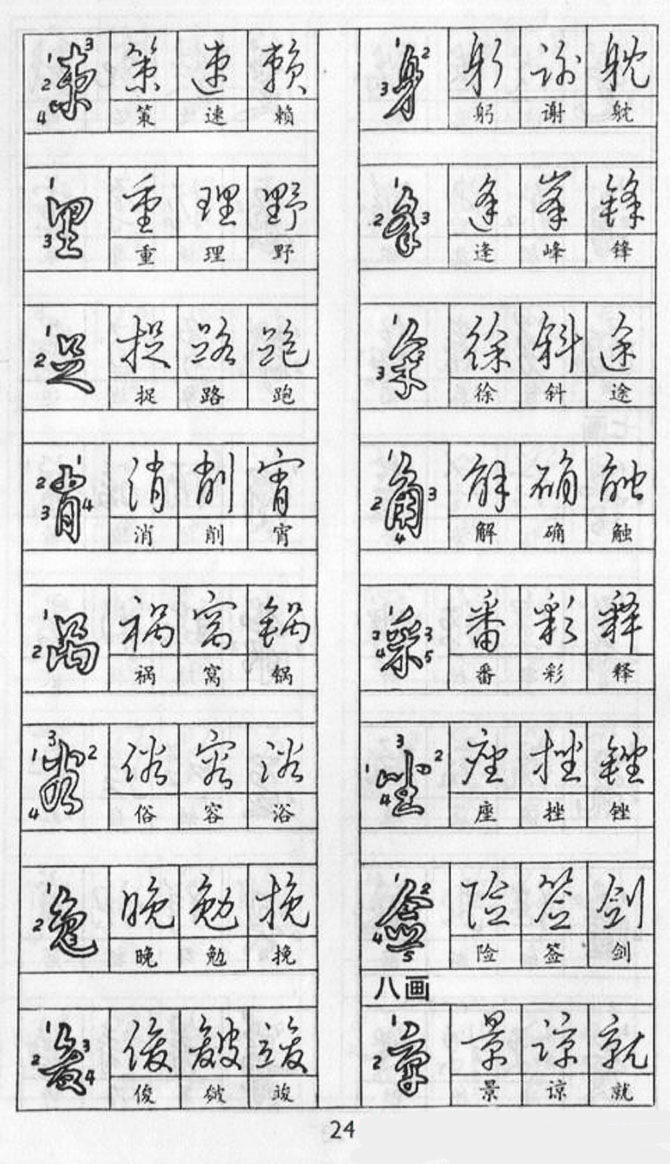 束 策 速 赖
策 速 赖
里 重 理 野
重 理 野
足 捉 路 跑
捉 路 跑
肖 消 削 宵
消 削 宵
呙 祸 窝 锅
祸 窝 锅
谷 俗 容 浴
俗 容 浴
免 晚 勉 挽
晚 勉 挽
夋 俊 皴 竣
俊 皴 竣
身 躬 谢 躭
躬 谢 躭
夆 逢 峯 锋
逢 峰 锋
余 徐 斜 途
徐 斜 途
角 解 确 触
解 确 触
采 番 彩 释
番 彩 释
坐 座 挫 锉
座 挫 锉
佥 险 签 剑
险 签 剑
八画
京 景 谅 就
景 谅 就
24